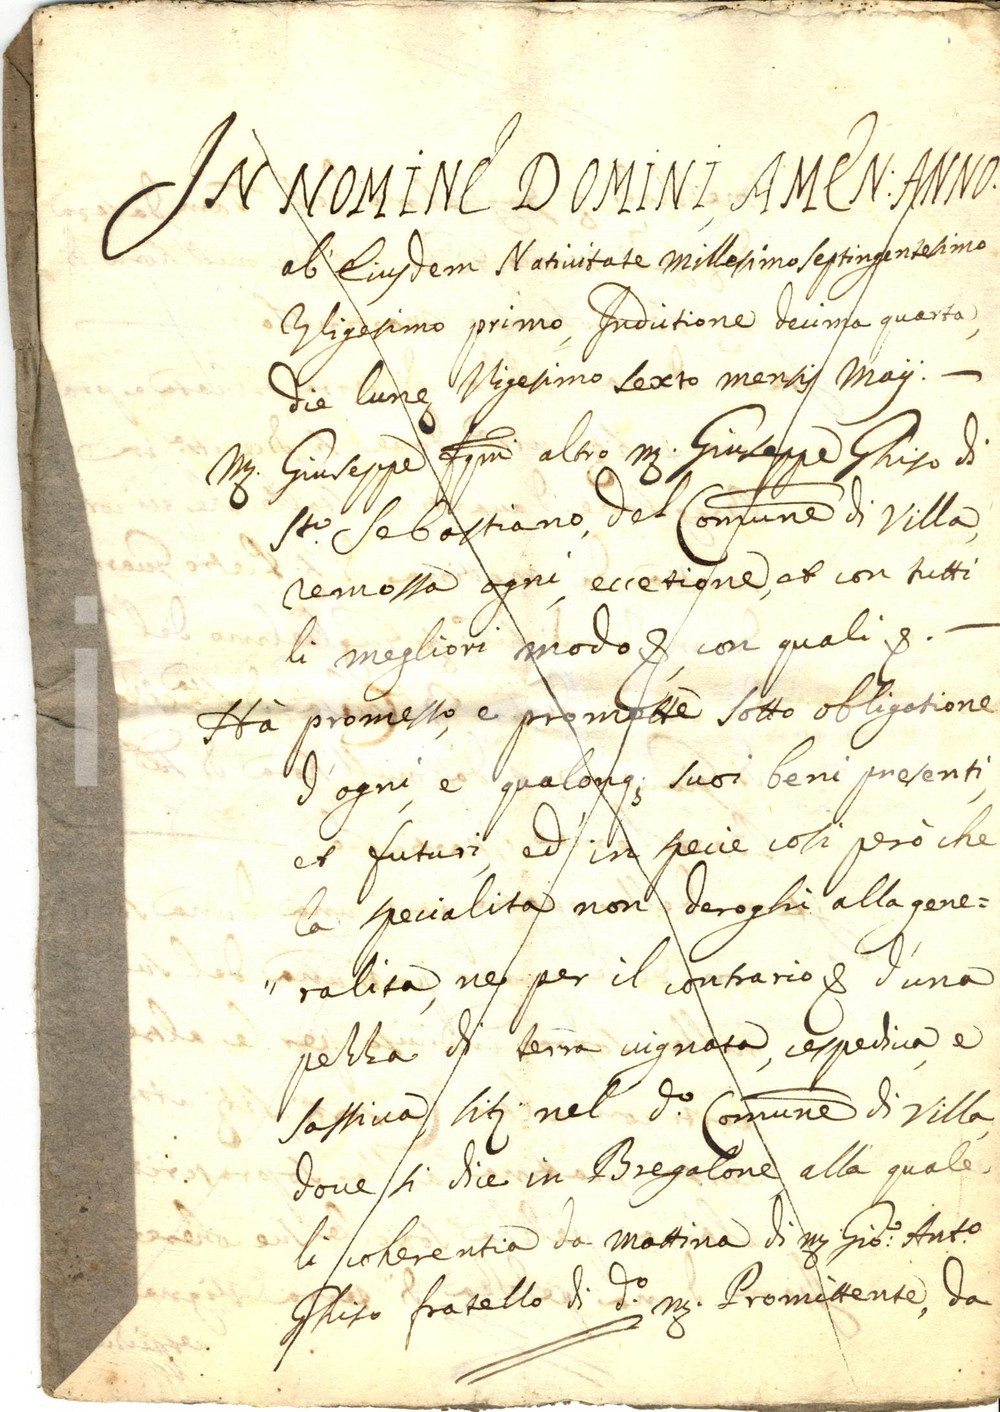 IN NOMINE DOMINI, AMEN: ANNO.
ab Eiusdem Nativitate Millesimo septingentesimo
Vigesimo primo, Indictione decima quarta,
die lune Vigesimo sexto mensis Maÿ. —
M. Giuseppe altro m. Giuseppe Ghiso di
Sto. Sebastiano, del Comune di Villa,
remossa ogni eccetione, et con tutti
li megliori modo &, con quali &. —
Hà promesso, e promette sotto obligatione
d'ogni, e qualonq; suoi beni presenti,
et futuri, ed in specie così però che
la specialità non deroghi alla gene=
"ralità, ne per il contrario & d'una
pezza di terra vignata, cespediva, e
sassiva sitj nel d.o Comune di Villa,
dove si dice in Bregalone alla quale
li coherentia da mattina di m. Gio: Ant.o
Ghiso fratello di d.o m. Promittente, da